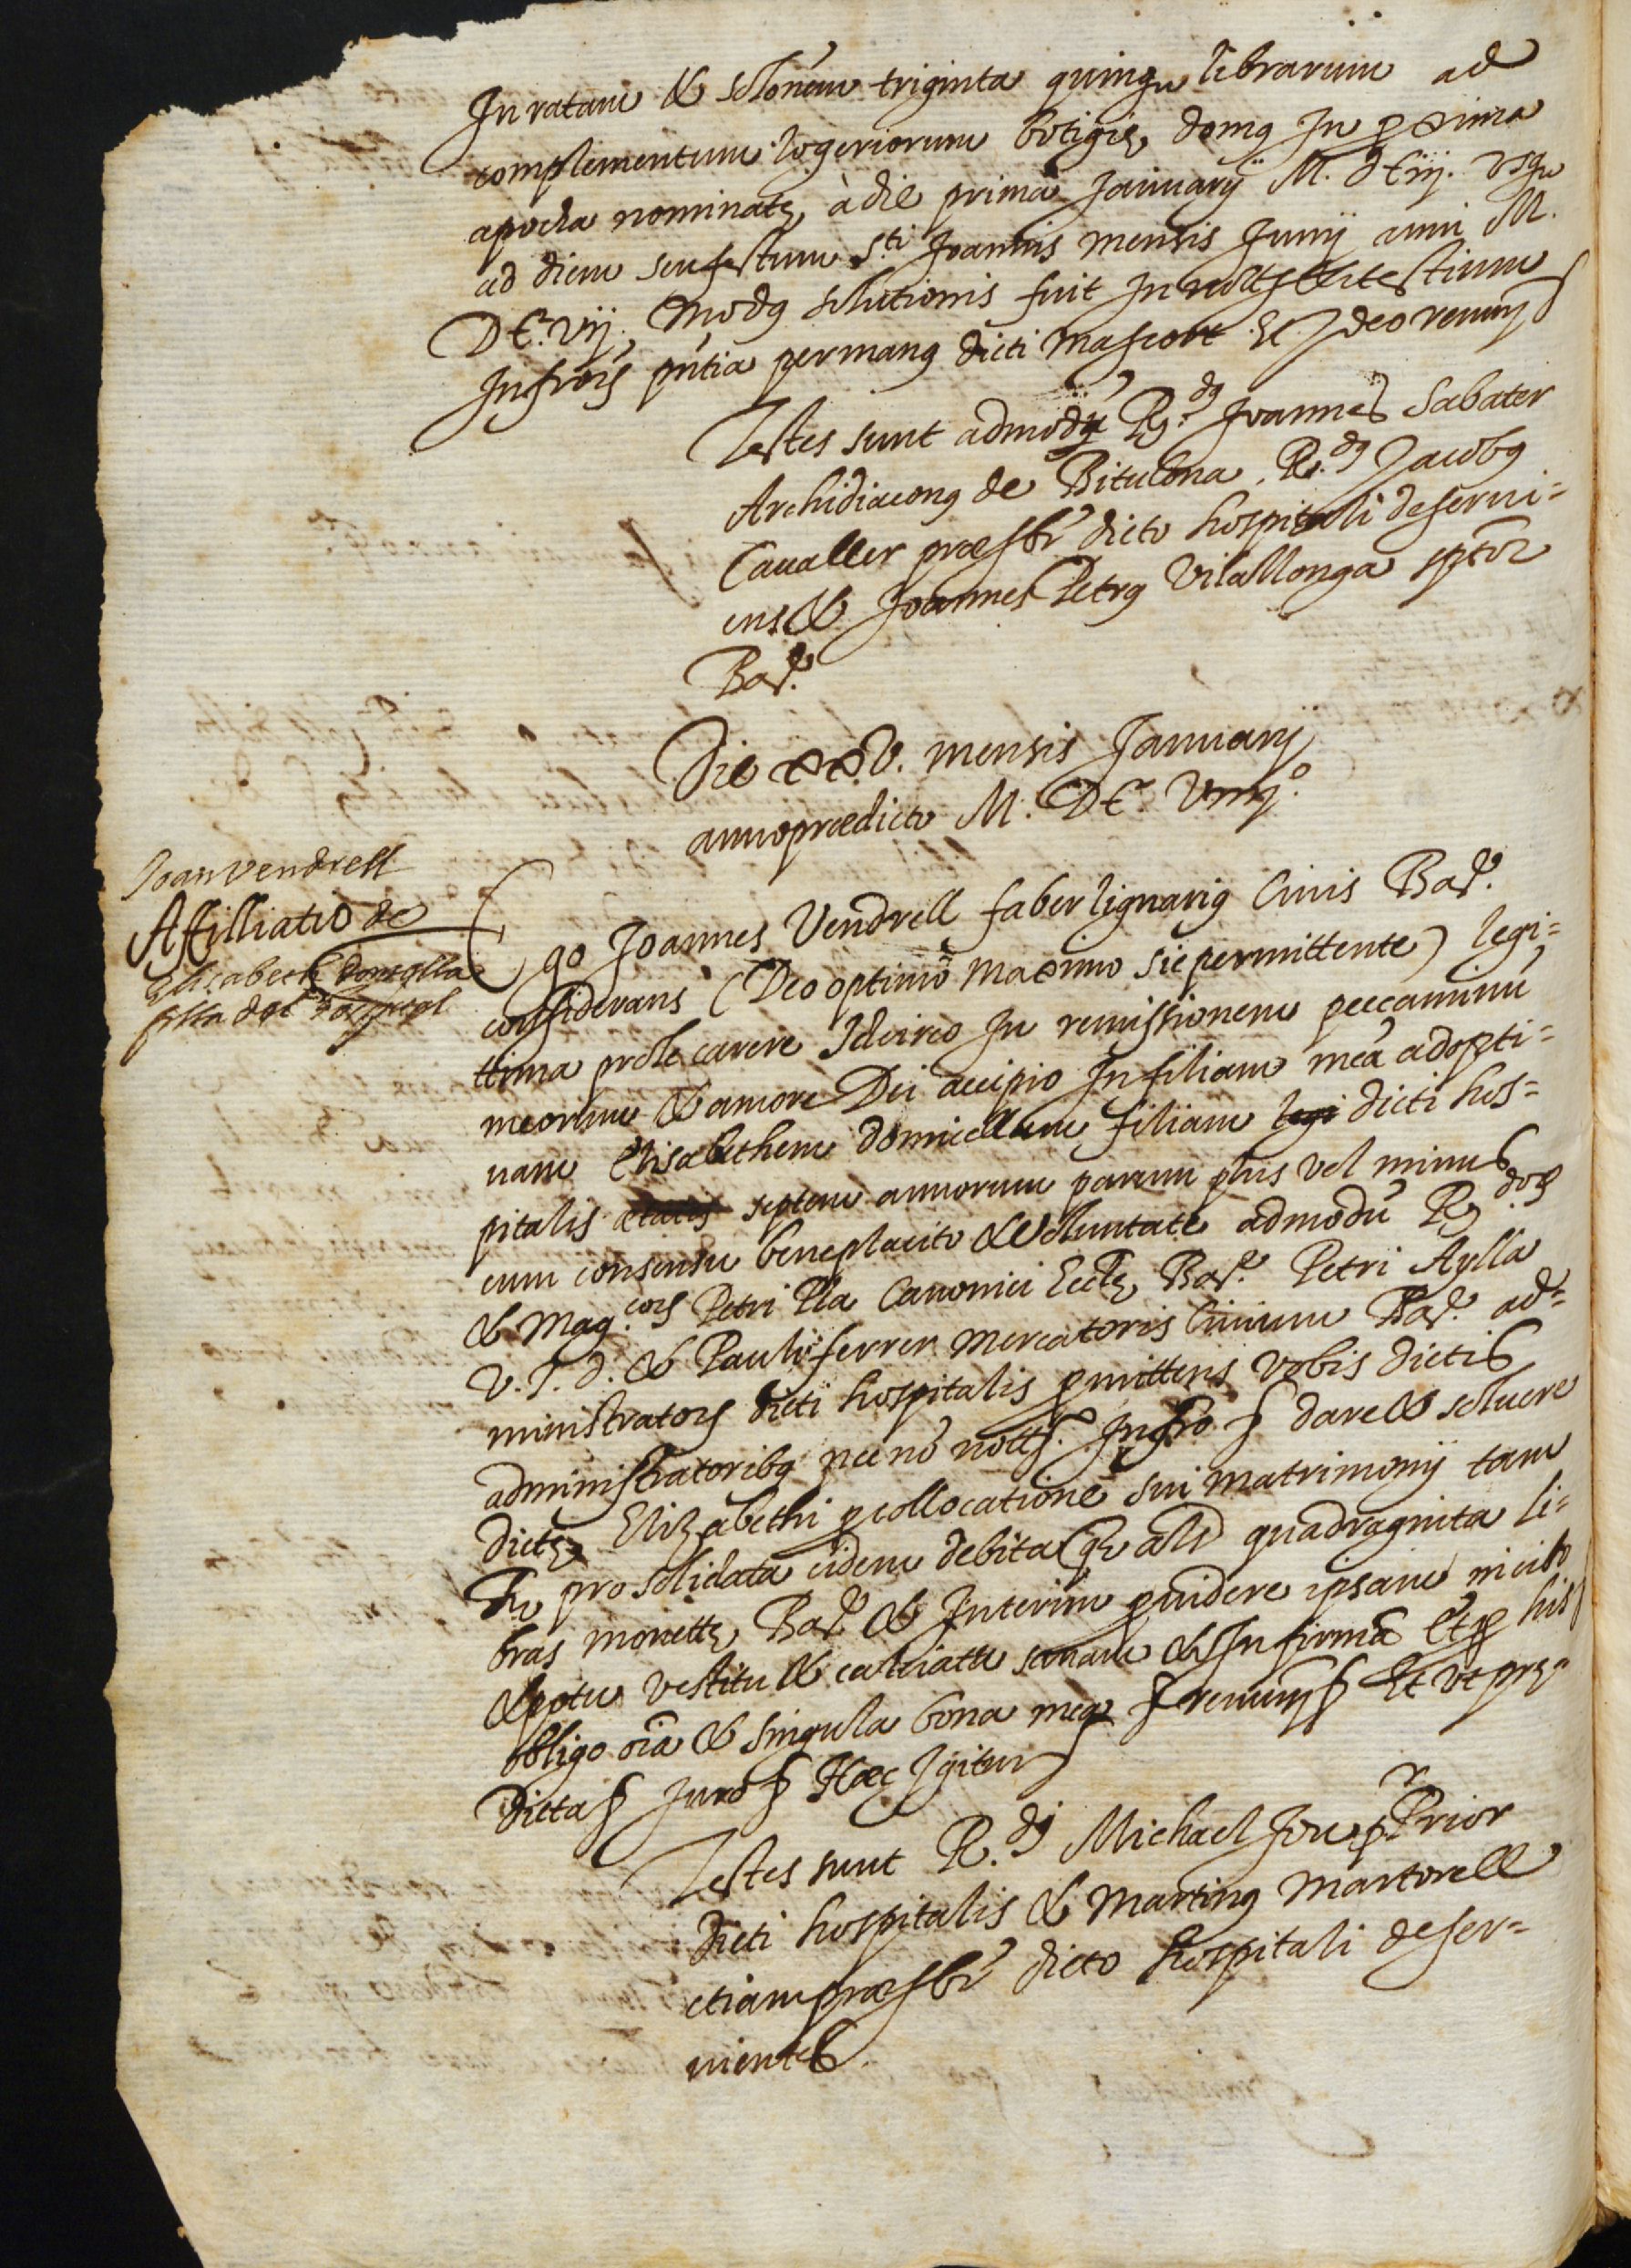 In ratam & sol̃onem triginta quinq₃ librarum ad
complementum logeriorum botigię, domꝰ In pxima
apocha nominatę, à die prima January M. DCiij. vsq₃
ad diem seu festum S.ti Joannis mensis Junij anni M.
DC. vij, Modꝰ solutionis fuit In not. & testium
Infrõs pñtia per manꝰ dicti Mascort Et Ideo renunꝭ
Testes sunt admodũ R.dꝰ Joannes Sabater
Archidiaconꝰ de Bitulona, R.dꝰ Jacobꝰ
Cavaller præsbr̃ dicto hospitali deserui=
ens & Joannes Petrꝰ Vilallonga sptor
Bar.
Die xxv. mensis January
anno prædicto M. DC. Viiij.º
Joan Vendrell
Affilliatio de
Elisabeth Donzella
filla del hospital
Ego Joannes Vendrell faber lignariꝰ Ciuis Bar.
considerans (Deo optimo Maximo sic permittente) legi=
ttima prole carere Idcirco In remissionem peccaminũ
meorum & amore Dei accipio In filiam meã adopti=
uam Elisabethem domicellam filiam legi dicti hos=
pitalis ætatis septem annorum parum plus vel minus
cum consensu beneplacito & voluntate admodũ R.dorꝭ
& Mag.corꝭ Petri Pla Canonici Eccłę, Bar. Petri Aylla
V. J. d. & Pauli ferrer mercatoris Ciuium Bar. ad=
ministratorꝭ dicti hospitalis pmittens vobis dictis
administratoribꝰ nec nõ not. Infro ꝭ dare & soluere
dictę Elizabethi p collocationẽ sui Matrimonij tam
pro solidata eidem debita q̃ als quadraginta li=
bras monetę, Bar. & Interim puidere ipsam in cibo
& potu vestitu & calciatu sanam & Infirmã Et p his
obligo oĩa & singula bona mea ꝭ renunꝭ Et vt prę=
dicta ꝭ Juro ꝭ Hæc Igitur
Testes sunt R.dj Michael Jou pr̃ Prior
dicti hospitalis & Martinꝰ Martorell
etiam præsbr̃ dicto hospitali deser=
uientes.